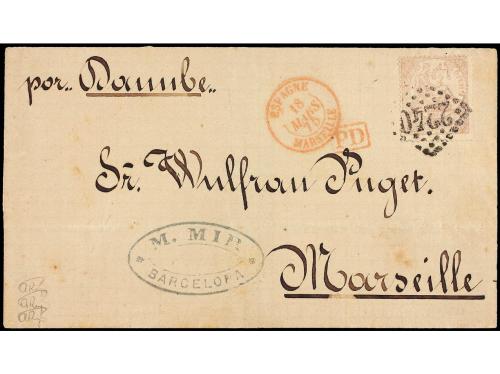 por Danube
ESPAGNE
18
MARS
75
MARSEILLE
PD
2240
Sr. Wulfran Puget.
M. MIR
BARCELONA
Marseille